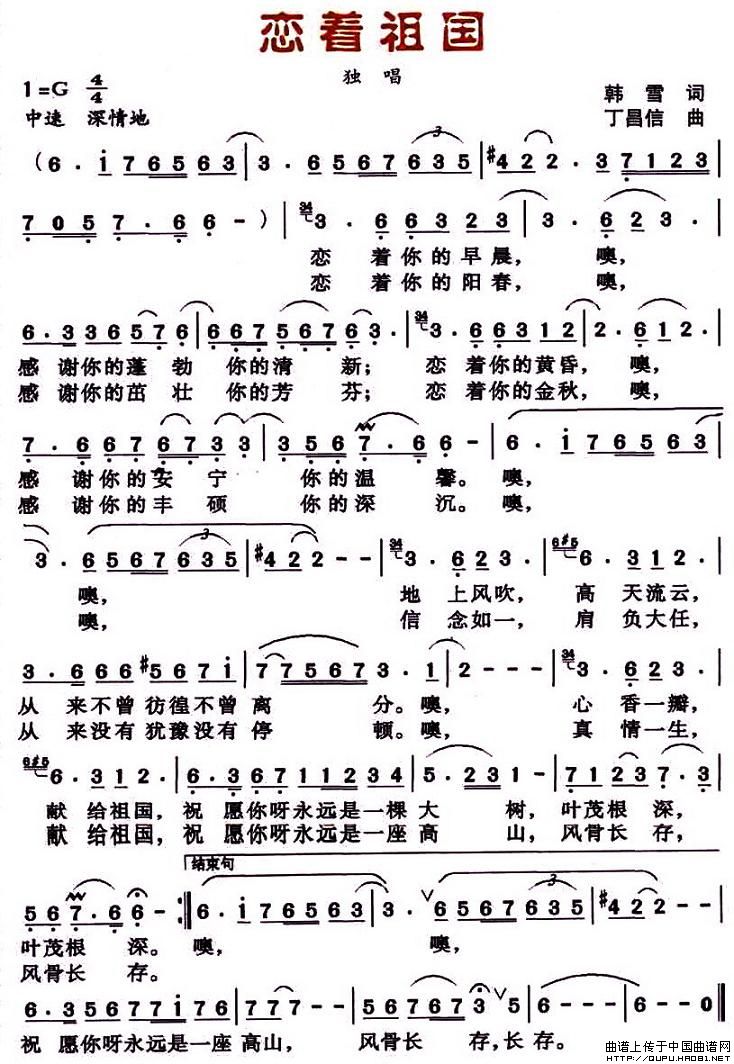 恋着祖国
独 唱
1=G 4/4
韩 雪 词
中速 深情地
丁昌信 曲
(6·i76563|3·6567635|#422·37123|
705 7·66-)|3·66323|3·623·|
恋 着你的早晨， 噢，
恋 着你的阳春， 噢，
6·336576|66756763·|3·66312|2·612·|
感 谢你的蓬 勃 你的清 新； 恋 着你的黄昏， 噢，
感 谢你的茁 壮 你的芳 芬； 恋 着你的金秋， 噢，
7·6676733|3567·66-|6·i76563|
感 谢你的安 宁 你的温 馨。噢，
感 谢你的丰 硕 你的深 沉。噢，
3·6567635|#422--|3·623·|6·312·|
噢， 地 上风吹， 高 天流云，
噢， 信 念如一， 肩 负大任，
3·666#567i|775673·1|2---|3·623·|
从 来不曾 彷徨不曾 离 分。噢， 心 香一瓣，
从 来没有 犹豫没有 停 顿。噢， 真 情一生，
6·312·|6·367112 34|5·231-|71237·3|
献 给祖国， 祝 愿你呀永远是一棵 大 树， 叶茂根 深，
献 给祖国， 祝 愿你呀永远是一座 高 山， 风骨长 存，
结束句
567·66-:|6·i76563|3·6567635|#422--|
叶茂根 深。 噢， 噢，
风骨长 存。
6·35677i76|777--|567673|5·66-|6--0|
祝 愿你呀永远是一座 高山， 风骨长 存，长存。
曲谱上传于中国曲谱网
HTTP://QUPU.HAO81.NET